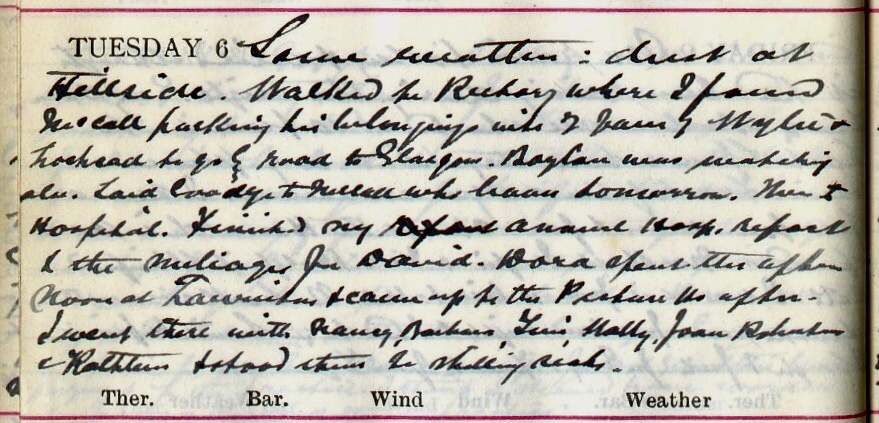 TUESDAY 6 Same weather: dust at
Hillside. Walked to Rectory where I found
McCall packing his belongings with 2 vans of Wylie &
Lochead to go by road to Glasgow. Boylan was watching
also. Said Goodbye to McCall who leaves tomorrow. Then to
Hospital. Finished my annual Hosp. report
& the mileages for David. Dora spent the after
noon at & came up to the Picture Ho after.
I went there with Nancy, Barbara, Molly, Joan
& Kathleen & stood them 2/- shilling seats.
Ther. Bar. Wind Weather